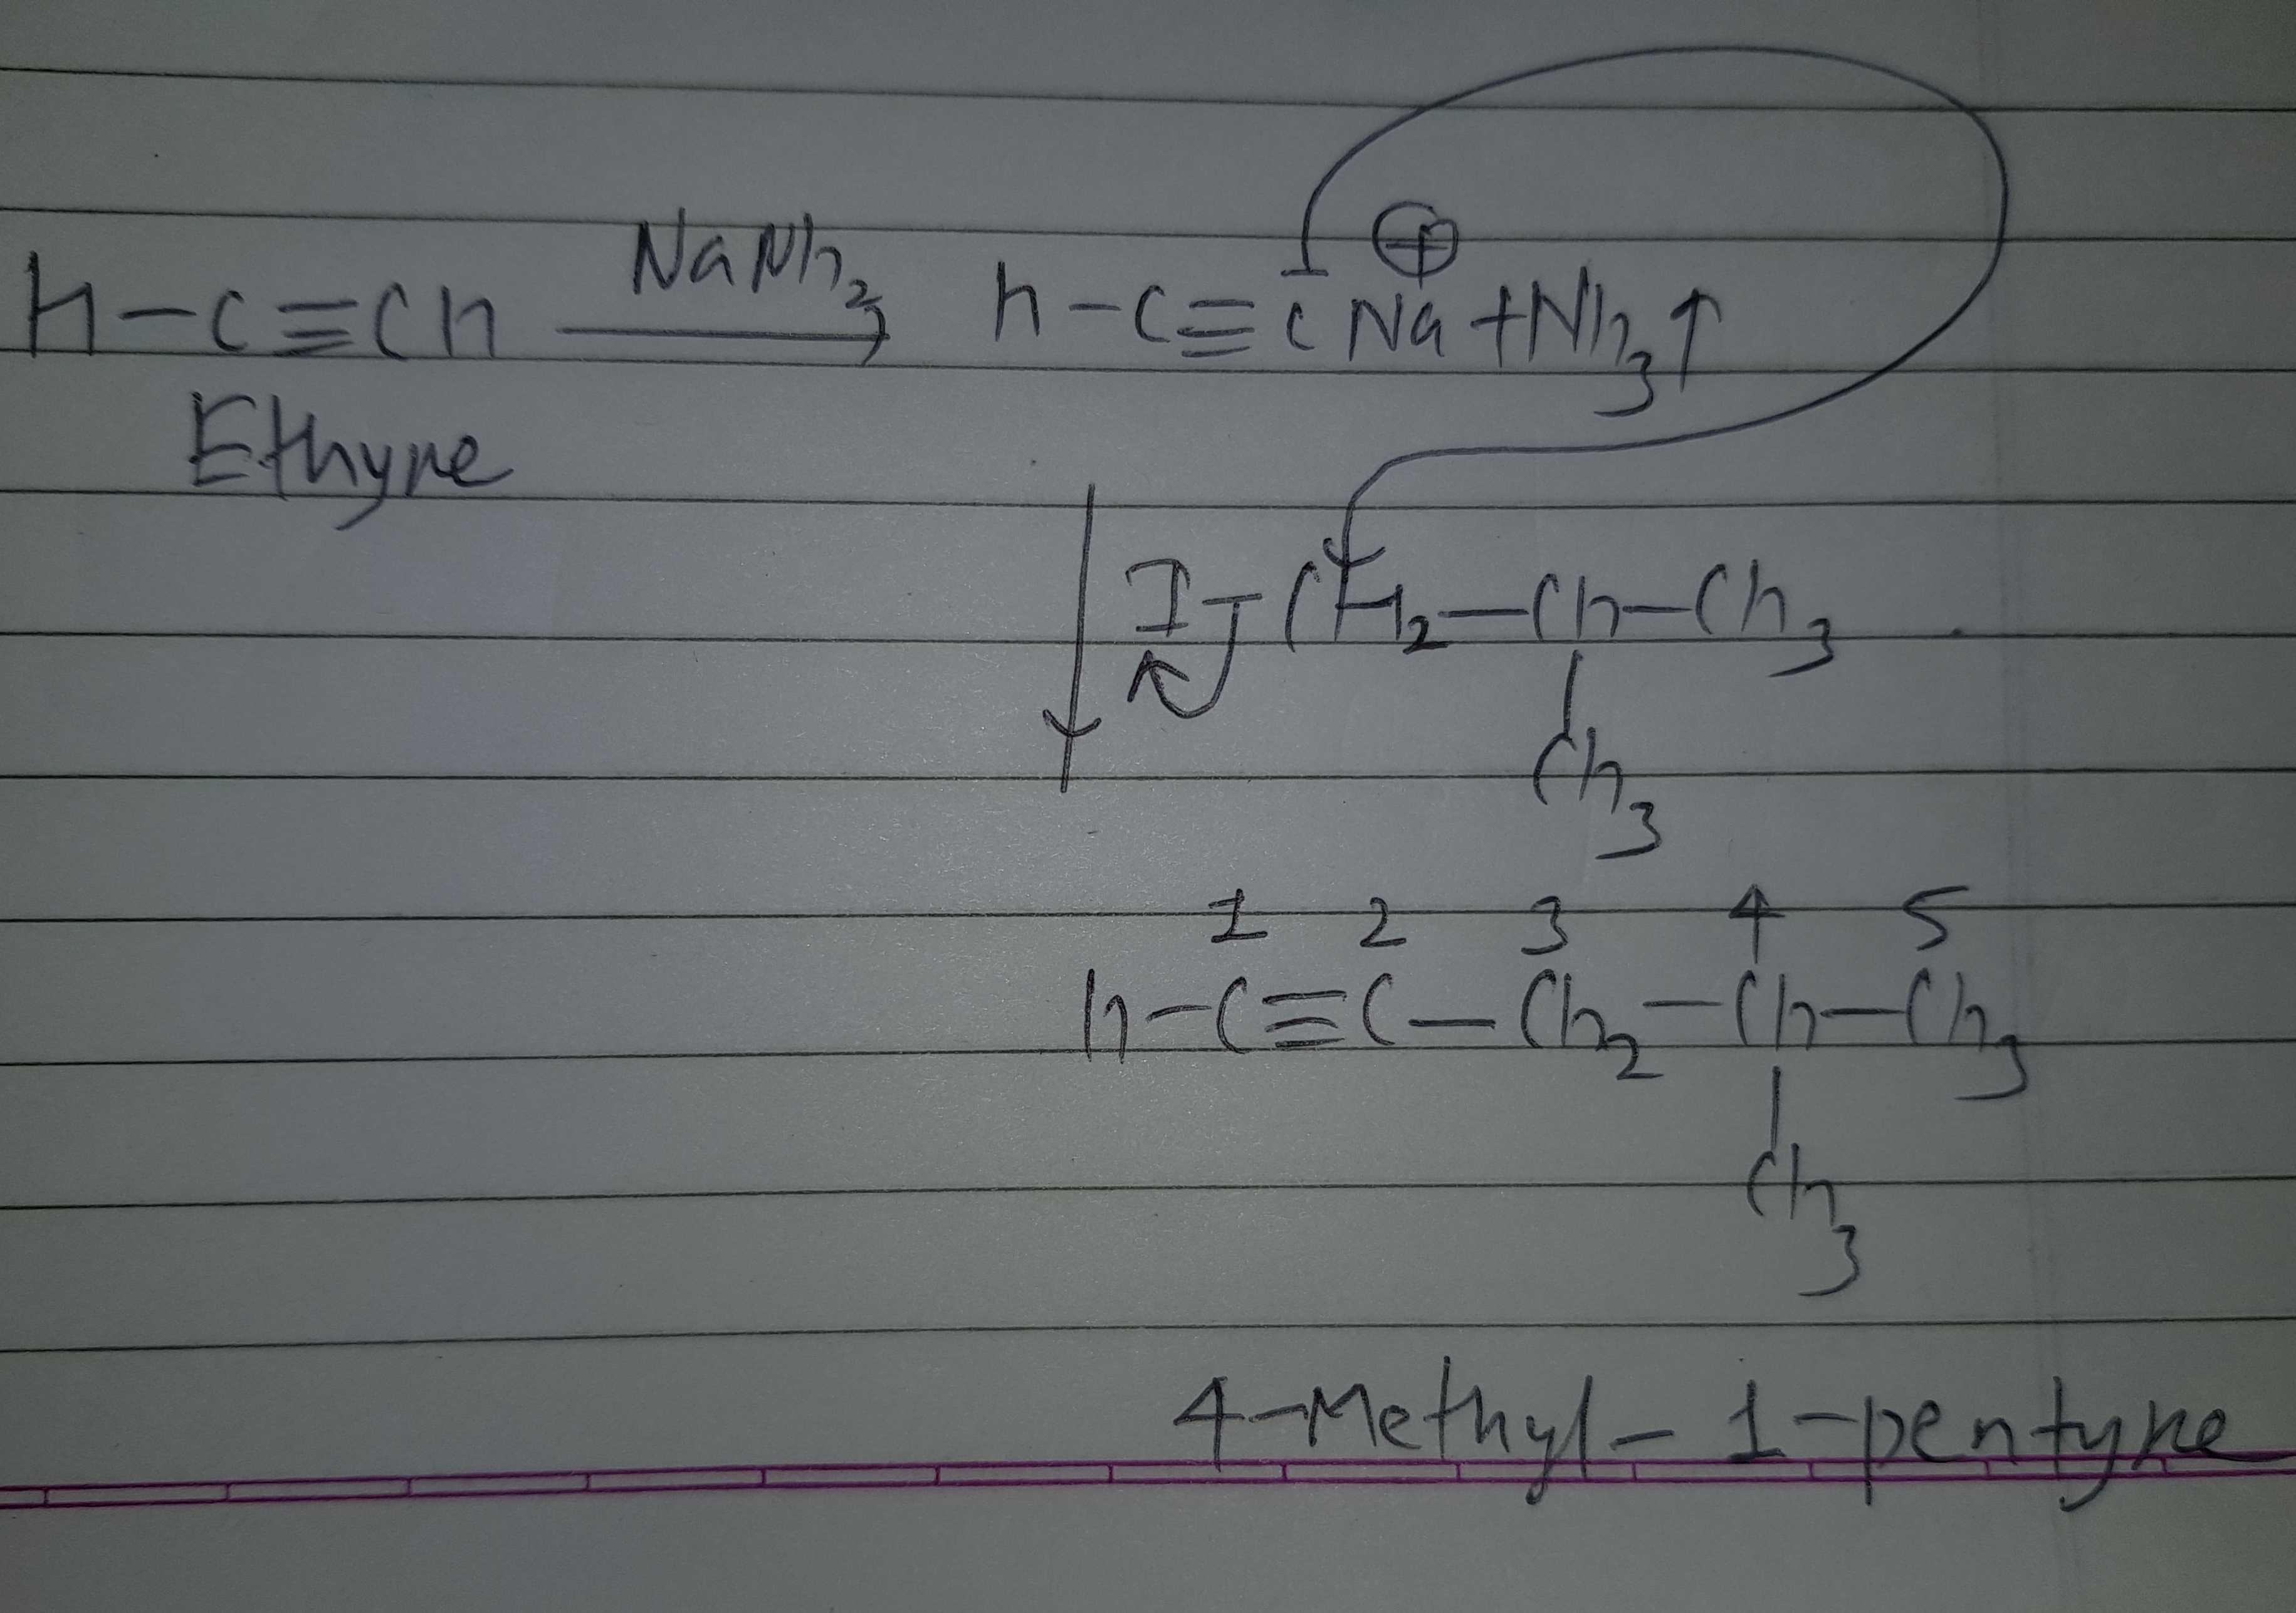 H-C≡CH NaNH₂ H-C≡C⁻ Na⊕ + NH₃↑
Ethyne
I-CH₂-CH-CH₃
CH₃
1 2 3 4 5
H-C≡C-CH₂-CH-CH₃
CH₃
4-Methyl-1-pentyne